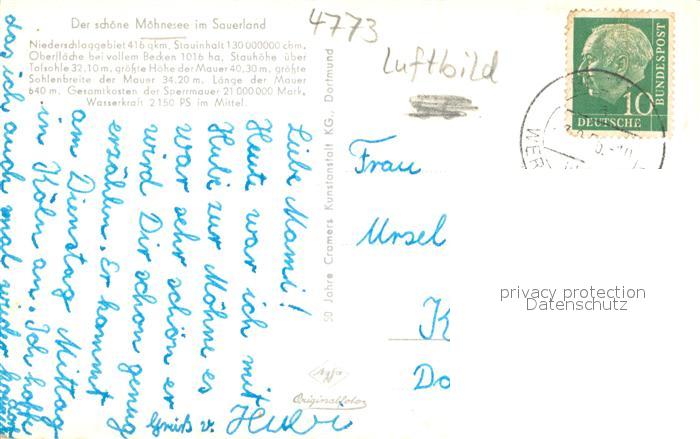 Der schöne Möhnesee im Sauerland
Niederschlaggebiet 416 qkm, Stauinhalt 130 000 000 cbm,
Oberfläche bei vollem Becken 1016 ha, Stauhöhe über
Talsohle 32,10 m, größte Höhe der Mauer 40,30 m, größte
Sohlenbreite der Mauer 34,20 m. Länge der Mauer
640 m. Gesamtkosten der Sperrmauer 21 000 000 Mark.
Wasserkraft 2 150 PS im Mittel.
4773
Luftbild
10
DEUTSCHE
BUNDESPOST
WER
Liebe Mami!
Heute war ich mit
Hubi zur Möhne es
war sehr schön er
wird Dir schon genug
erzählen. Er kommt
am Dienstag Mittag
in Köln an. Ich hoffe
das ich auch mal wieder
Gruß v.
50 Jahre Cramers Kunstanstalt KG., Dortmund
Originalfoto
Frau
Ursel
K
Do
privacy protection
Datenschutz